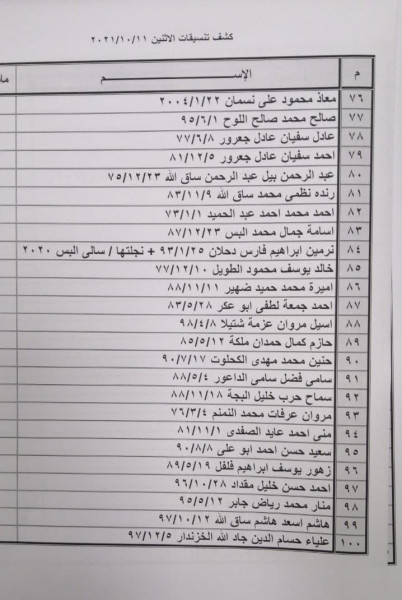 كشف تنسيقات الاثنين ٢٠٢١/١٠/١١
م الإســــم
٧٦ معاذ محمود على نسمان ٢٠٠٤/١/٢٢
٧٧ صالح محمد صالح اللوح ٩٥/٦/١
٧٨ عادل سفيان عادل جعرور ٧٧/٦/٨
٧٩ احمد سفيان عادل جعرور ٨١/١٢/٥
٨٠ عبد الرحمن بيل عبد الرحمن ساق الله ٧٥/١٢/٢٣
٨١ رنده نظمى محمد ساق الله ٨٣/١١/٩
٨٢ احمد محمد احمد عبد الحميد ٧٣/١/١
٨٣ اسامة جمال محمد البس ٨٧/١٢/٢٣
٨٤ نرمين ابراهيم فارس دحلان ٩٣/١/٢٥ + نجلتها / سالى البس ٢٠٢٠
٨٥ خالد يوسف محمود الطويل ٧٧/١٢/١٠
٨٦ اميرة محمد حميد ضهير ٨٨/١١/١١
٨٧ احمد جمعة لطفى ابو عكر ٨٣/٥/٢٨
٨٨ اسيل مروان عزمة شتيلا ٩٨/٤/٨
٨٩ حازم كمال حمدان ملكة ٨٥/٥/١٢
٩٠ حنين محمد مهدى الكحلوت ٩٠/٧/١٧
٩١ سامى فضل سامى الداعور ٨٨/٥/٤
٩٢ سماح حرب خليل البجة ٨٨/١١/١٨
٩٣ مروان عرفات محمد النمنم ٧٦/٣/٤
٩٤ منى احمد عايد الصفدى ٨١/١١/١
٩٥ سعيد حسن احمد ابو على ٩٠/٨/٨
٩٦ زهور يوسف ابراهيم فلفل ٨٩/٥/١٩
٩٧ احمد حسن خليل مقداد ٩٦/١٠/٢٨
٩٨ منار محمد رياض جابر ٩٥/٥/١٢
٩٩ هاشم اسعد هاشم ساق الله ٩٧/١٠/١٢
١٠٠ علياء حسام الدين جاد الله الخزندار ٩٧/١٢/٥